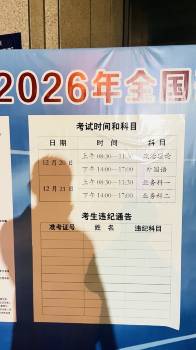 2026年全国
考试时间和科目
日 期 时 间 科 目
12月20日 上午 08:30—11:30 政治理论
下午 14:00—17:00 外国语
12月21日 上午 08:30—11:30 业务课一
下午 14:00—17:00 业务课二
考生违纪通告
准考证号 姓 名 违纪科目